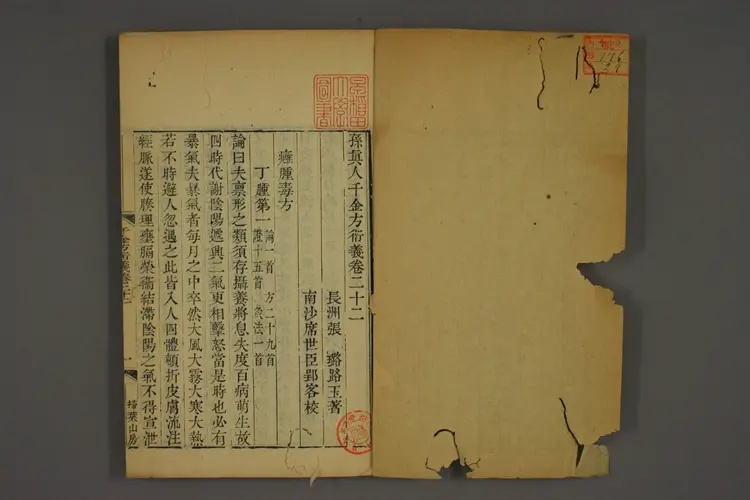 孫眞人千金方衍義卷二十二
長洲張　璐路玉著
南沙席世臣郢客校
癰腫毒方
丁腫第一
論一首　方二十九首
證十五首　灸法一首
論曰夫稟形之類須存攝養將息失度百病萌生故
四時代謝陰陽遞興二氣更相擊怒當是時也必有
暴氣夫暴氣者每月之中卒然大風大霧大寒大熱
若不時避人忽遇之此皆入人四體頓折皮膚流注
經脈遂使腠理壅膈榮衞結滯陰陽之氣不得宣泄
千金方衍義卷二十二
一
掃葉山房
早稲田大學圖書